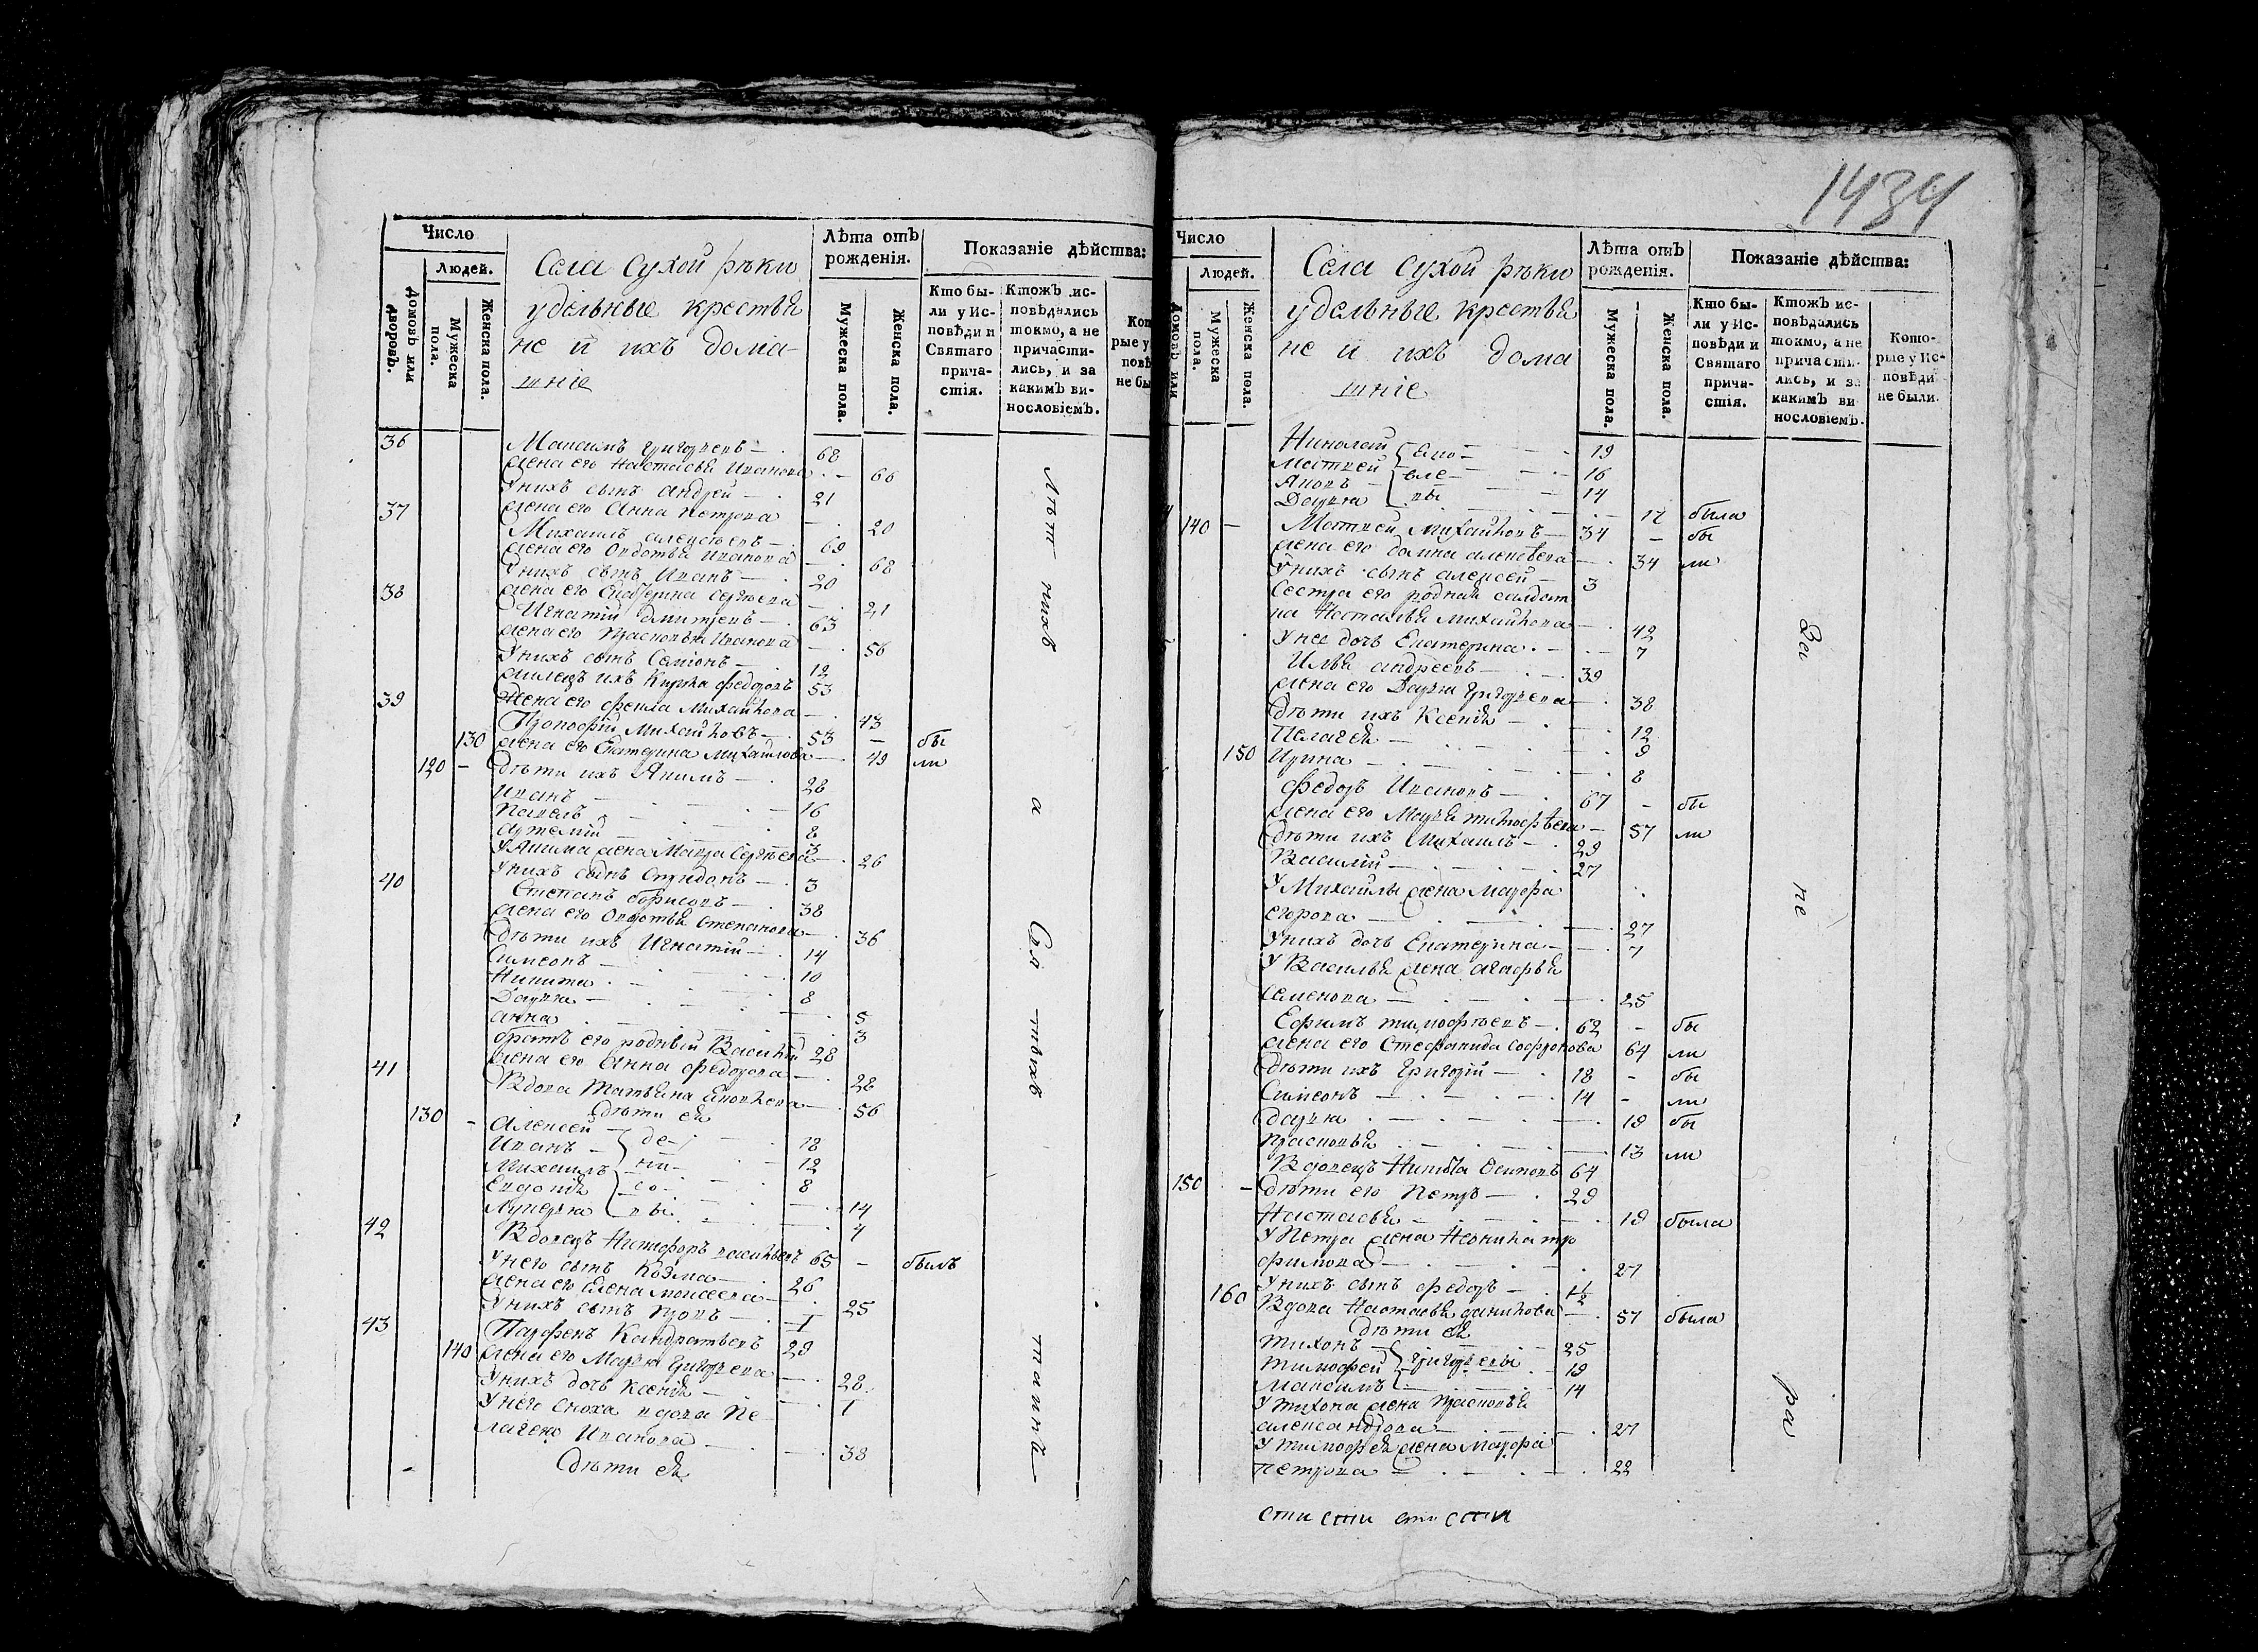 1434
Число
Людей.
Домовъ или дворовъ.
Мужеска пола.
Женска пола.
Села Сухой рѣки
удѣльные крестья
не и ихъ дома-
шніе
Лѣта отъ рожденія.
Мужеска пола.
Женска пола.
Показаніе дѣйства:
Кто бы-
ли у Ис-
повѣди и
Святаго
прича-
стія.
Ктожъ ис-
повѣдались
токмо, а не
причасти-
лись, и за
какимъ ви-
нословіемъ.
36 Максимъ Григорьевъ — 68
жена его Настасья Иванова — 66
У нихъ сынъ Андрей — 21
жена его Анна Петрова — 20
37 Михаилъ Алексѣевъ — 69
жена его Овдотья Иванова — 68
У нихъ сынъ Иванъ — 20
жена его Екатерина Сергѣева — 21
38 Игнатій Дмитріевъ — 63
жена его Прасковья Иванова — 56
У нихъ сынъ Семіонъ — 12
ихъ Федоровъ 53
жена его Михайлова — 43
39 Прокофій Михайловъ — 53 — бы
130 жена его Екатерина Михайлова — 49 ли
120 — дѣти ихъ Якимъ — 28
Иванъ — 16
Павелъ — 8
Артемій — 3
У Якима жена Мавра Сергѣева — 26
У нихъ сынъ Спиридонъ — 3
40 Степанъ Борисовъ — 38
жена его Овдотья Степанова — 36
дѣти ихъ Игнатій — 14
Симеонъ — 10
Никита — 8
Дарья — 5
Анна — 3
братъ его родный Василій 28
жена его Анна Федорова — 28
41 Вдова Татьяна — 56
Дѣти ея
130 — Алексей — 18
Иванъ — 12
Михаилъ — 8
Евдокія — 14
Лукерья — 4
42 Вдовецъ Никифоръ Васильевъ 65 — былъ
У него сынъ Козма — 26
жена его Елена Моисеева — 25
У нихъ сынъ — 1
43 Парфенъ Кандратьевъ 29
140 жена его Марья Григорьева — 28
У нихъ дочь Ксенія — 1
У него сноха вдова Пе-
лагея Иванова — 38
Дѣти ея
Число
Людей.
Домовъ или
Мужеска пола.
Женска пола.
Села Сухой рѣки
удѣльные крестья
не и ихъ дома
шніе
Лѣта отъ рожденія.
Мужеска пола.
Женска пола.
Показаніе дѣйства:
Кто бы-
ли у Ис-
повѣди и
Святаго
прича-
стія.
Ктожъ ис-
повѣдались
токмо, а не
причасти-
лись, и за
какимъ ви-
нословіемъ.
Кото-
рые у Ис-
повѣди
не были.
Николай — 19
Матвей — 16
Яковъ — 14
Дарья — 12 была
140 — Матвей Михайловъ — 34 — бы
жена его Домна Алексѣева — 34 ли
У нихъ сынъ Алексей — 3
Сестра его родная салдат
ка Настасья Михайлова — 42
У нее дочь Екатерина — 7
Илья Андреевъ — 39
жена его Дарья Григорьева — 38
дѣти ихъ Ксенія — 12
Пелагея — 9
150 Ирина — 8
Федоръ Ивановъ — 67 — бы
жена его Марья Тимофѣева — 57 ли
дѣти ихъ Михаилъ — 29
Василій — 27
У Михаилы жена Марфа
Егорова — 27
У нихъ дочь Екатерина — 7
У Василья жена Агафья
Семенова — 25
Ефимъ Тимофѣевъ — 62 — бы
жена его Стефанида Софронова 64 ли
дѣти ихъ Григорій — 18 — бы
Симеонъ — 14 — ли
Дарья — 19 бы
Прасковья — 13 ли
Вдовецъ Никита Осиповъ 64
150 — дѣти его Петръ — 29
Настасья — 19 была
У Петра жена Неонила Тро
фимова — 27
У нихъ сынъ Федоръ — 1½
160 Вдова Настасья Данилова — 57 была
дѣти ея
Тихонъ — Григорьевы 25
Тимофей — 19
Максимъ — 14
У Тихона жена Прасковья
Александрова — 27
У Тимофея жена Марфа
Петрова — 22